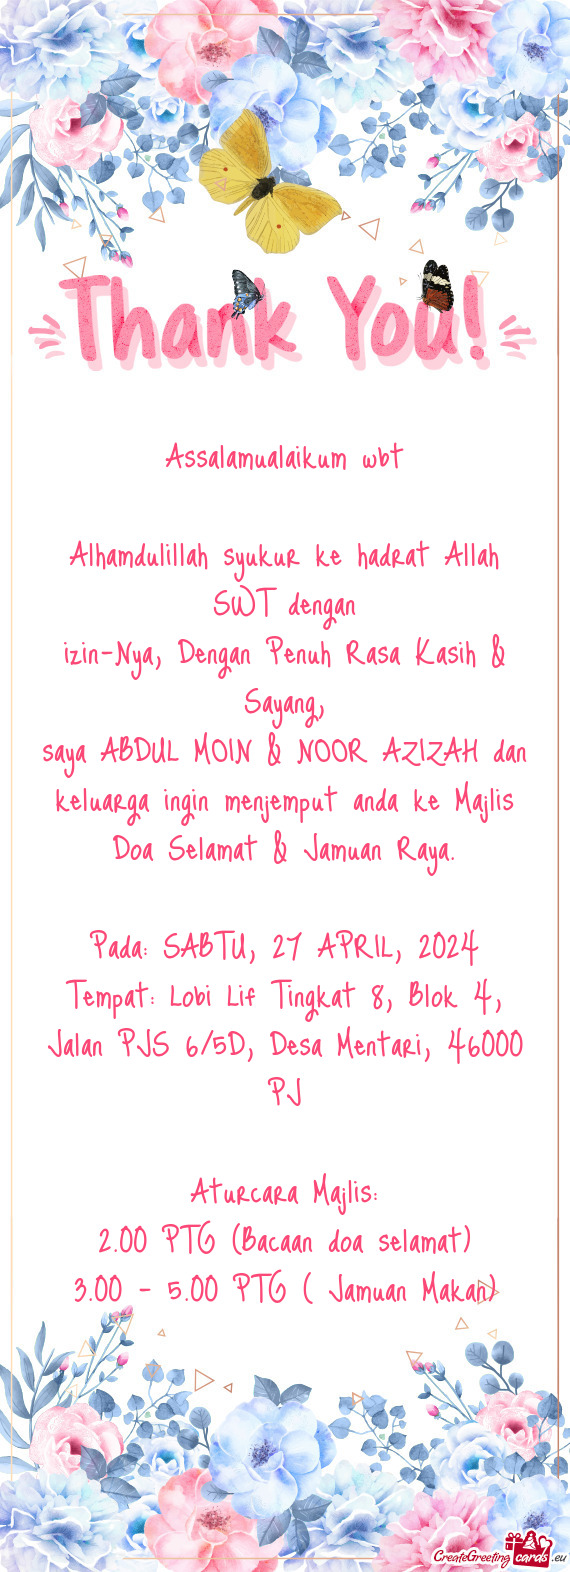 Thank You!
Assalamualaikum wbt
Alhamdulillah syukur ke hadrat Allah
SWT dengan
izin-Nya, Dengan Penuh Rasa Kasih &
Sayang,
saya ABDUL MOIN & NOOR AZIZAH dan
keluarga ingin menjemput anda ke Majlis
Doa Selamat & Jamuan Raya.
Pada: SABTU, 27 APRIL, 2024
Tempat: Lobi Lif Tingkat 8, Blok 4,
Jalan PJS 6/5D, Desa Mentari, 46000
PJ
Aturcara Majlis:
2.00 PTG (Bacaan doa selamat)
3.00 - 5.00 PTG ( Jamuan Makan)
CreateGreeting cards .eu